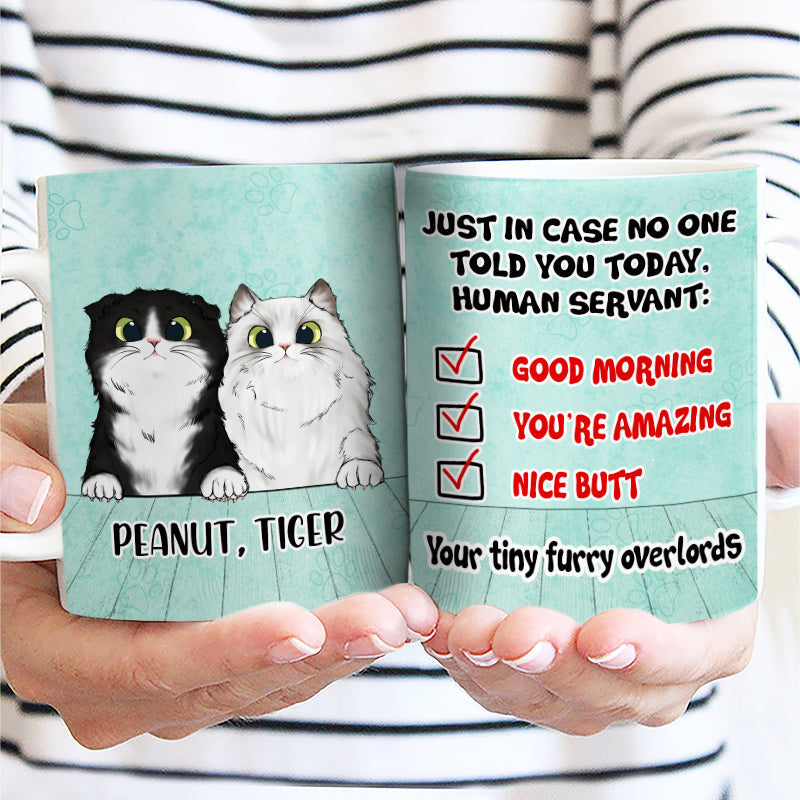 PEANUT, TIGER
JUST IN CASE NO ONE
TOLD YOU TODAY,
HUMAN SERVANT:
GOOD MORNING
YOU'RE AMAZING
NICE BUTT
Your tiny furry overlords